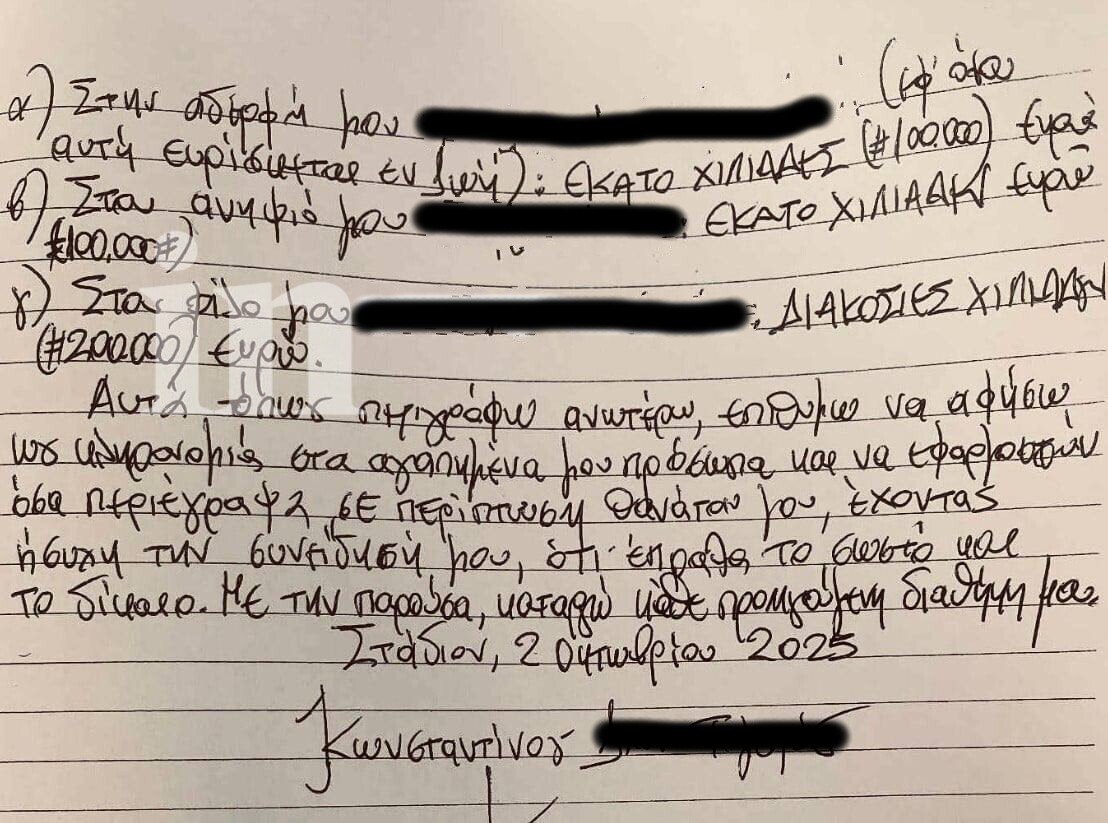 α) Στην αδερφή μου (εφ' όσον
αυτή ευρίσκεται εν ζωή): ΕΚΑΤΟ ΧΙΛΙΑΔΕΣ (#100.000) Ευρώ
β) Στον ανηψιό μου : ΕΚΑΤΟ ΧΙΛΙΑΔΕΣ Ευρώ
(#100.000#)
γ) Στον φίλο μου : ΔΙΑΚΟΣΙΕΣ ΧΙΛΙΑΔΕΣ
(#200.000) Ευρώ.
Αυτά όπως περιγράφω ανωτέρω, επιθυμώ να αφήσω
ως κληρονομιές στα αγαπημένα μου πρόσωπα και να εφαρμοστούν
όσα περιέγραψα σε περίπτωση θανάτου μου, έχοντας
ήσυχη την συνείδησή μου, ότι έπραξα το σωστό και
το δίκαιο. Με την παρούσα, καταργώ κάθε προηγούμενη διαθήκη μου.
Στάδιον, 2 Οκτωβρίου 2025
Κωνσταντίνος
in